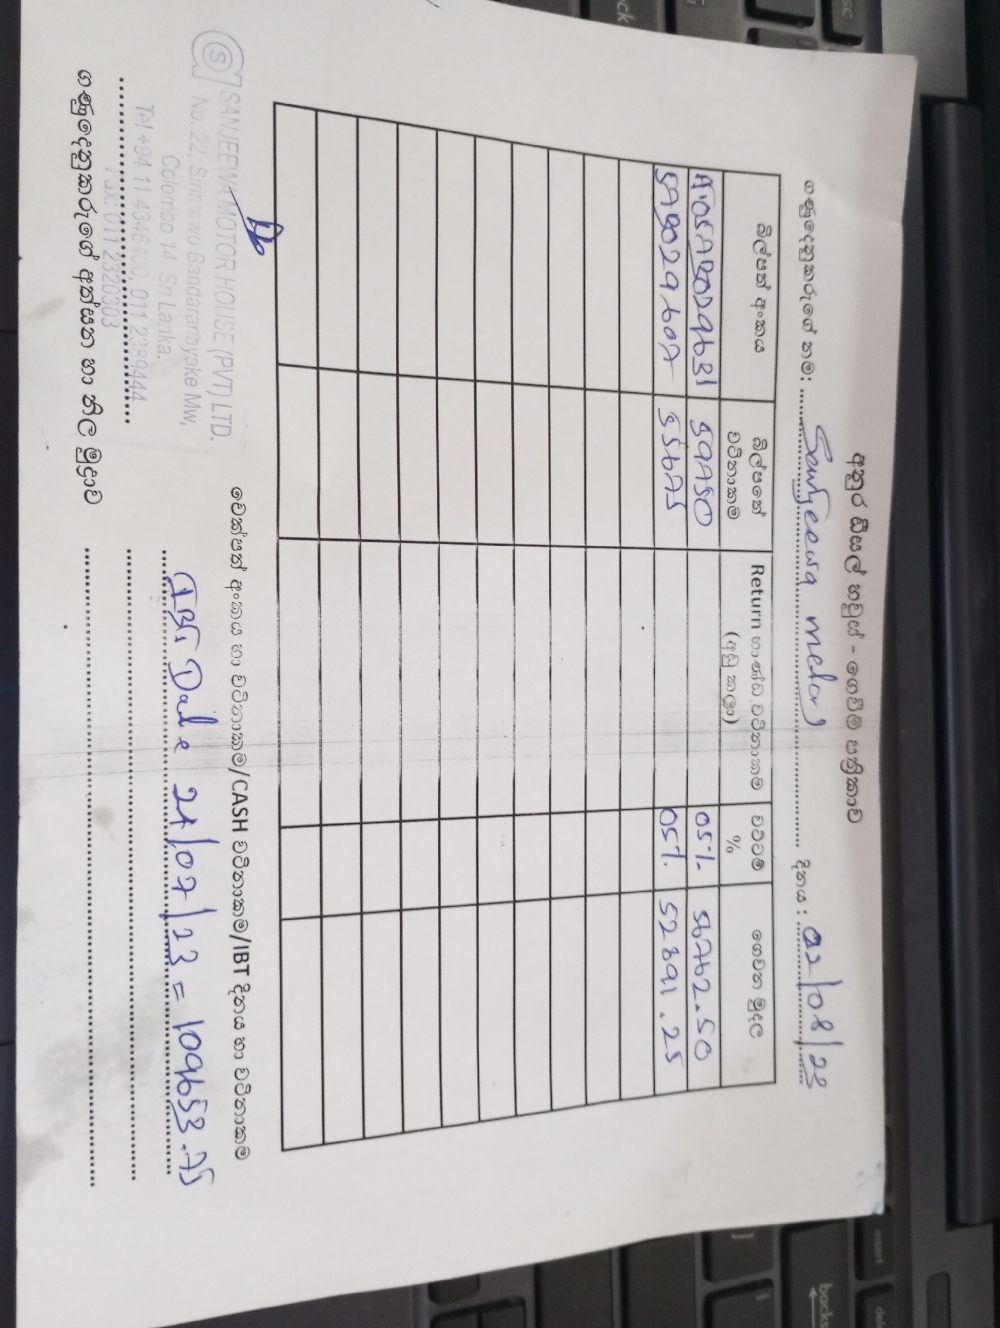 අනුර ඩීසල් හවුස් - ගෙවීම් පත්‍රිකාව
ගණුදෙනුකරුගේ නම: Sanjeewa motors දිනය: 02/08/23
බිල්පත් අංකය බිල්පතේ වටිනාකම Return භාණ්ඩ වටිනාකම (අඩු කලා) වට්ටම් % ගෙවන මුදල
59750 05% 56762.50
SAB029607 55675 05% 52891.25
චෙක්පත් අංකය හා වටිනාකම/CASH වටිනාකම/IBT දිනය හා වටිනාකම
IBT Date 27/07/23 = 109653.75
SANJEEWA MOTOR HOUSE (PVT) LTD.
No. 22, Sirimavo Bandaranayake Mw,
Colombo 14 Sri Lanka.
Tel +94 11 4346400, 011 2389444
Fax: 011 2320303
ගණුදෙනුකරුගේ අත්සන හා නිල මුද්‍රාව